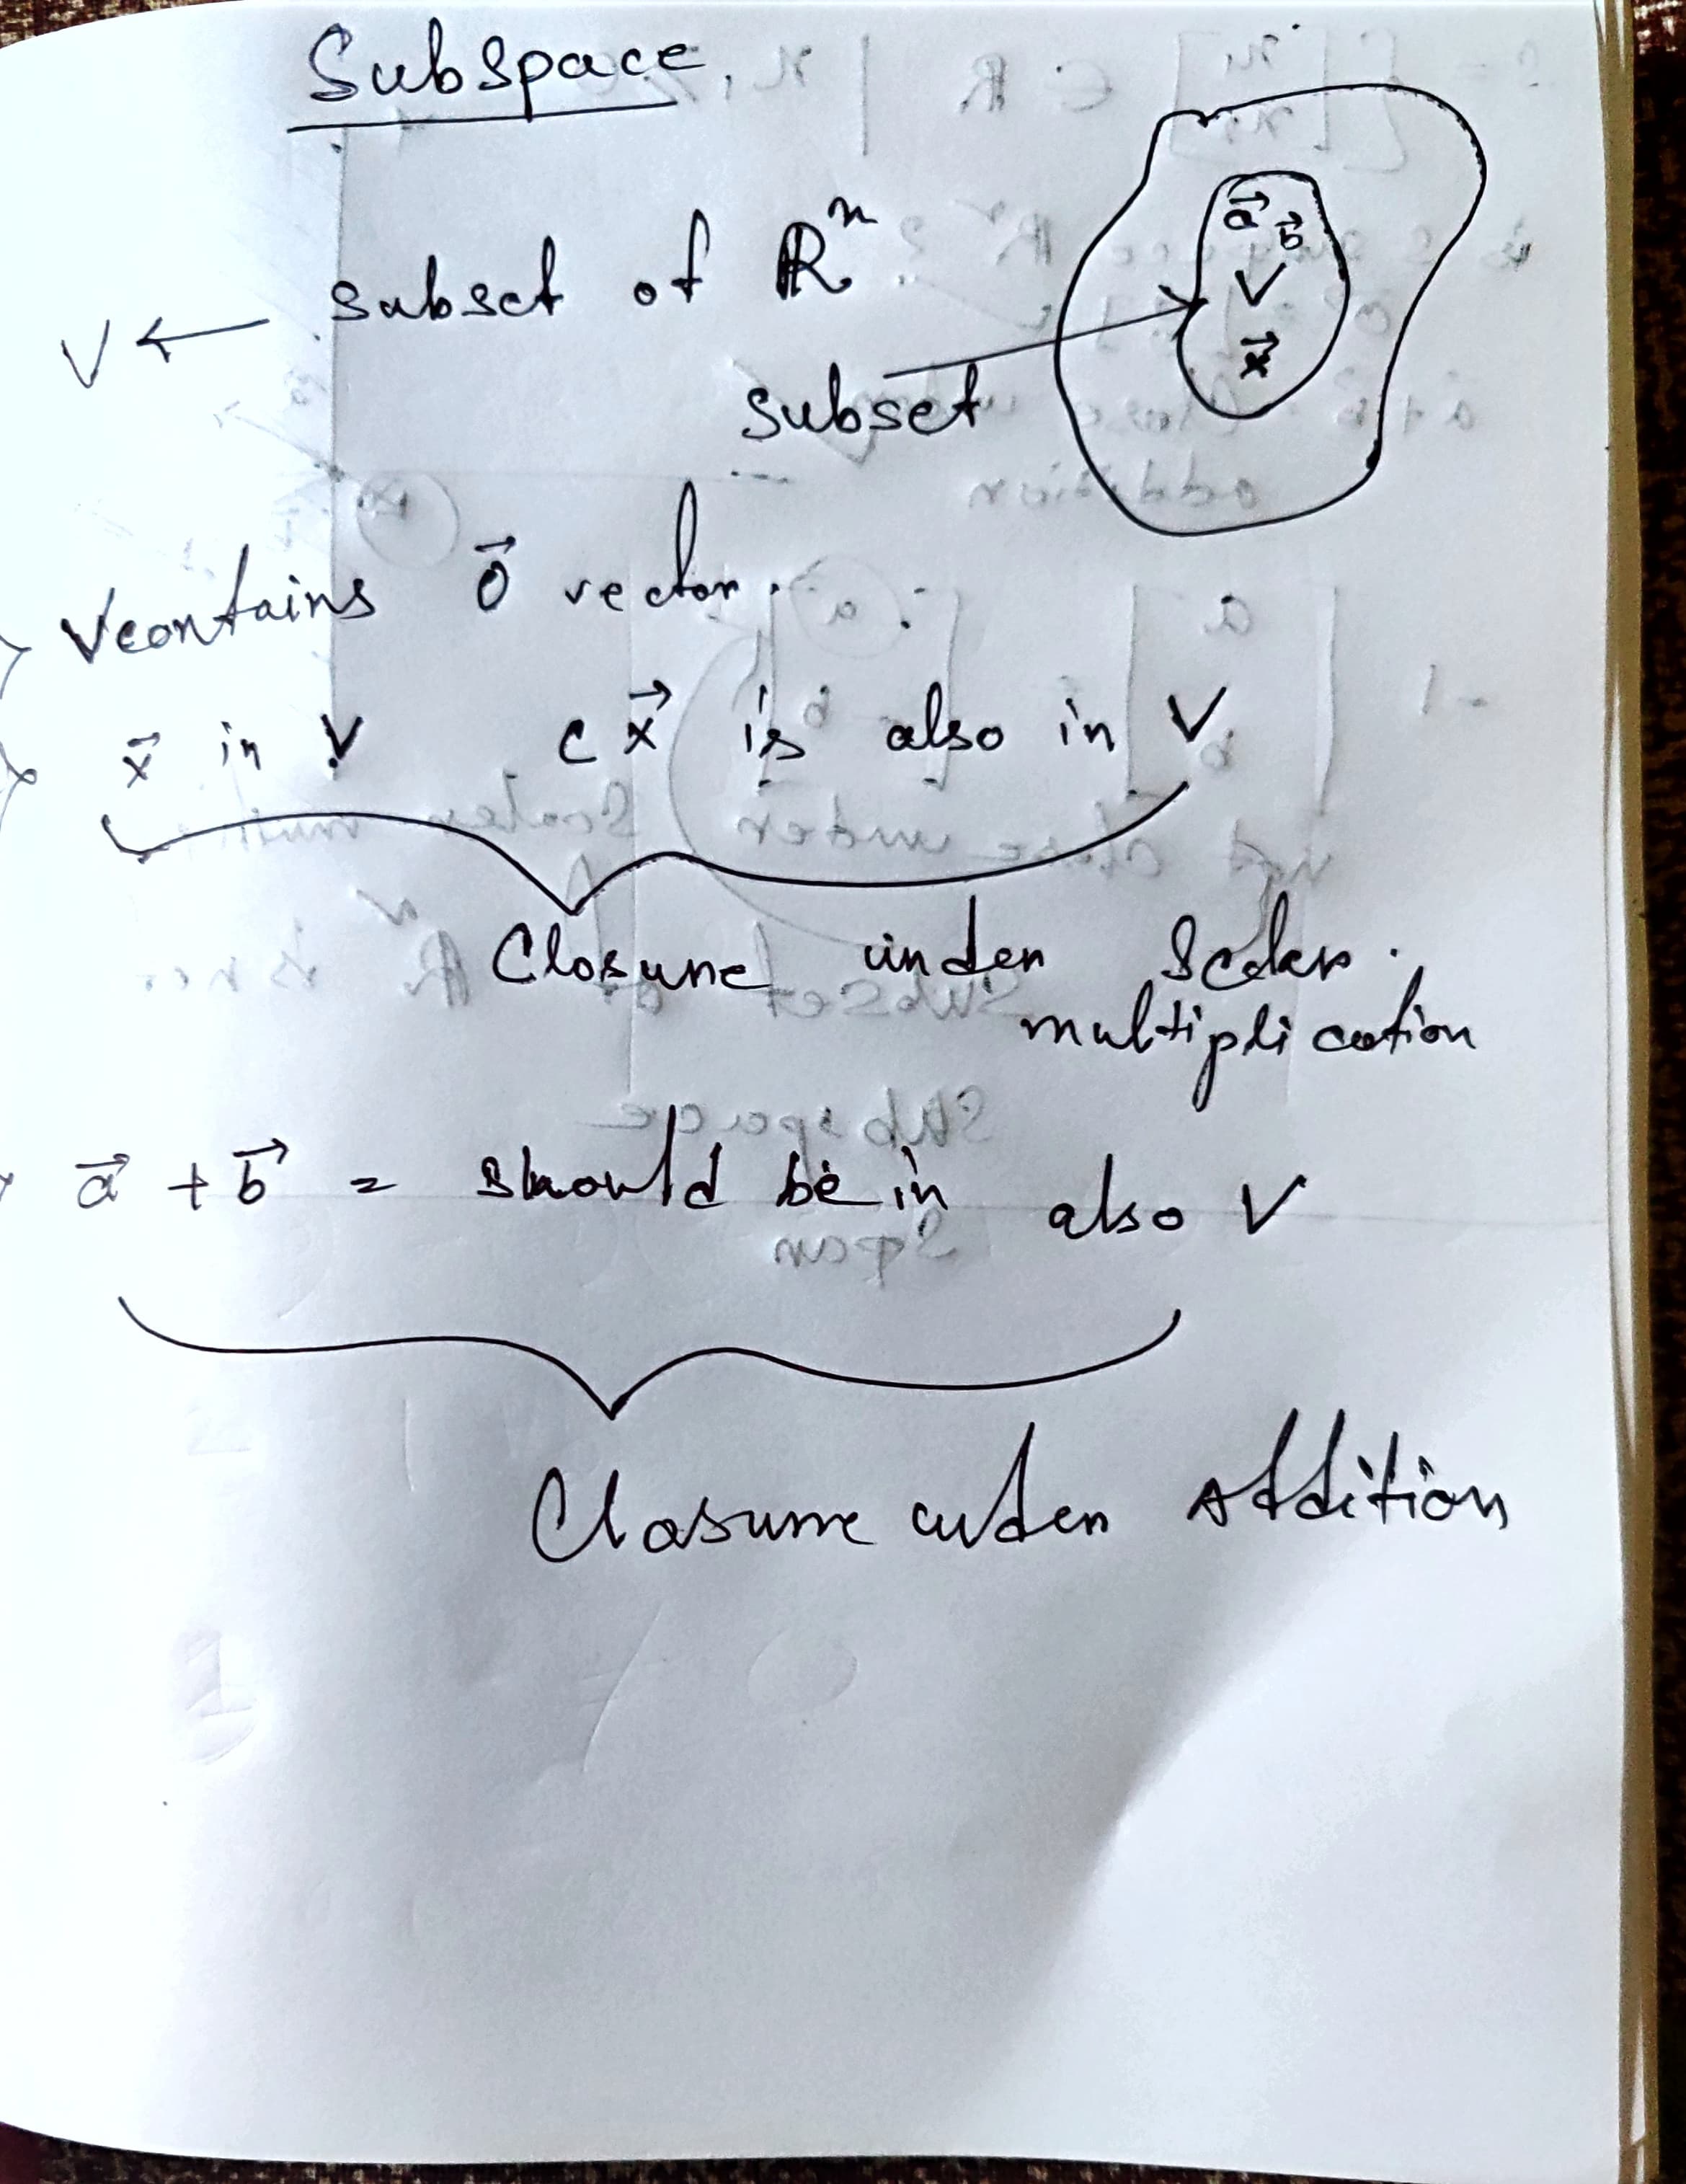 Subspace
V ← subset of ℝⁿ
a⃗ b⃗
V
x⃗
subset
V contains 0⃗ vector.
x⃗ in V    c x⃗ is also in V
Closure under Scalar
multiplication
a⃗ + b⃗ = should be in also V
Closure under Addition